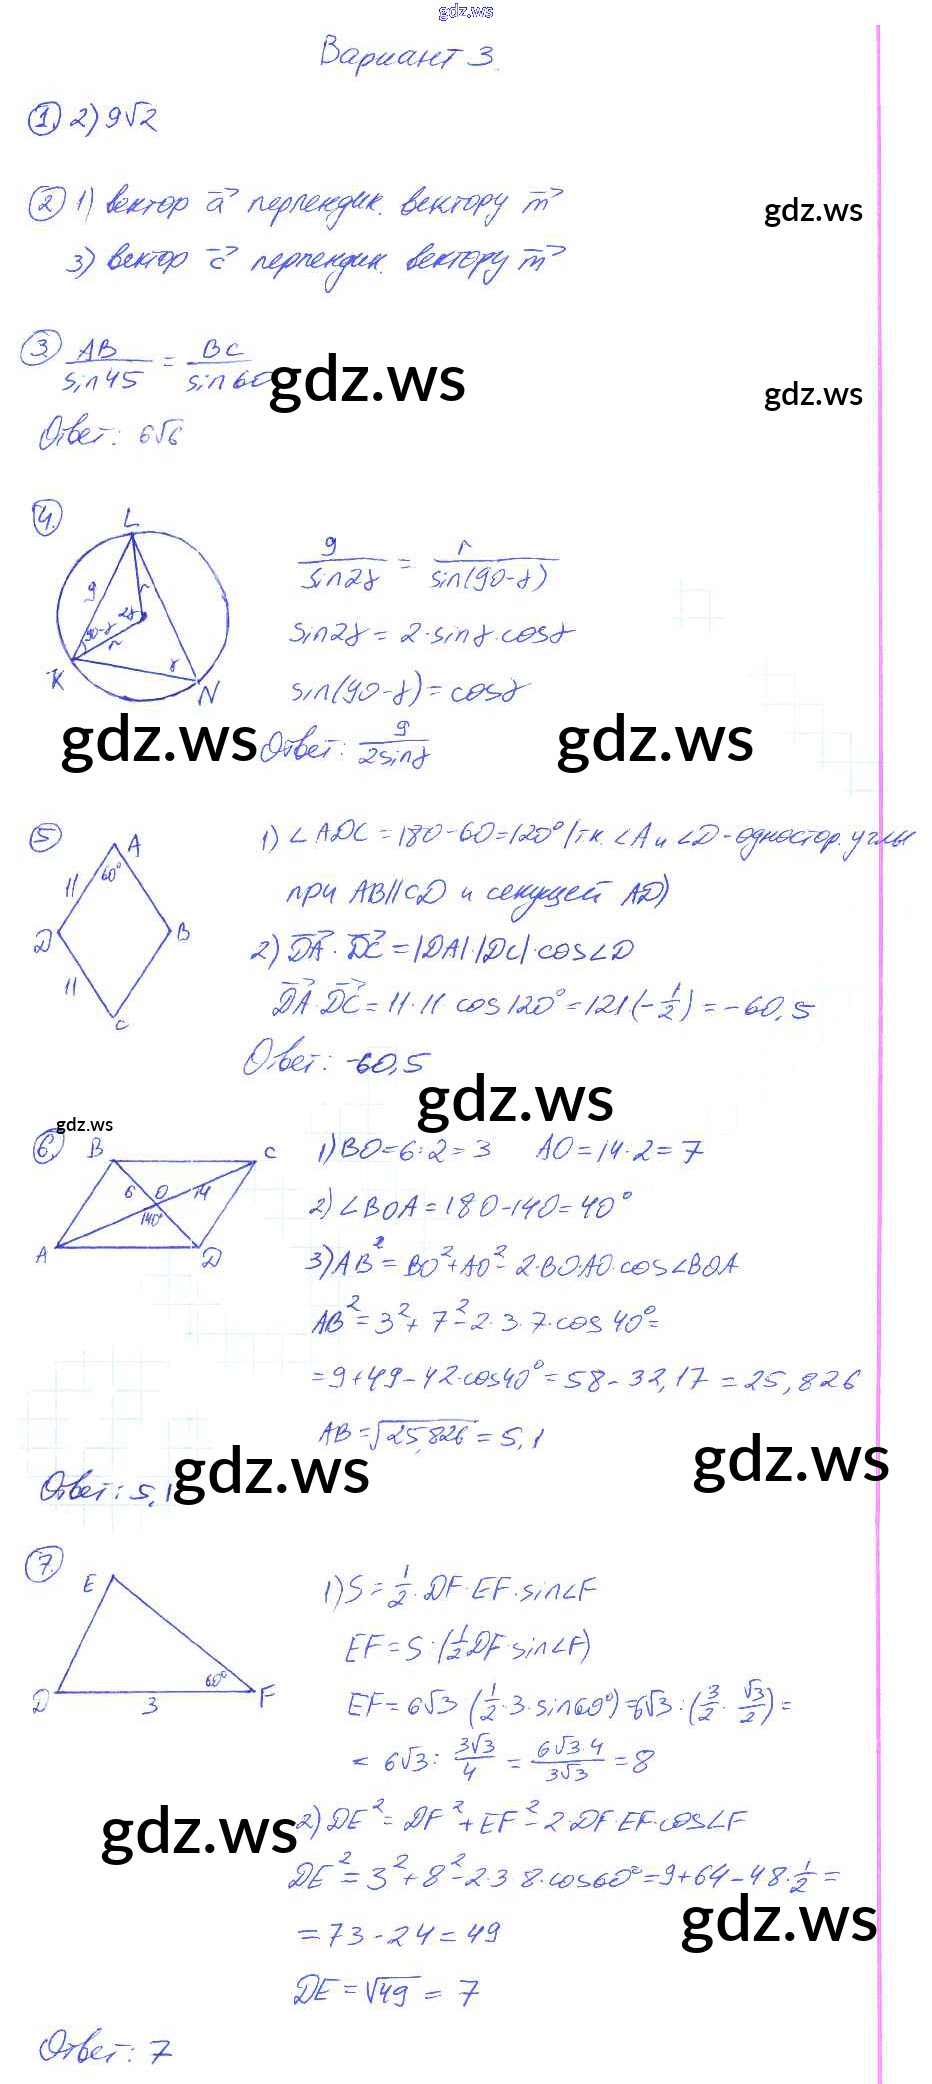 gdz.ws
Вариант 3.
1. 2) 9√2
2 1) вектор a⃗ перпендик. вектору m⃗
gdz.ws
3) вектор c⃗ перпендик. вектору m⃗
3. AB/sin45 = BC/sin60
gdz.ws
gdz.ws
Ответ: 6√6
4.
L
9 r 2γ 90-γ r γ
K N
9/sin2γ = r/sin(90-γ)
sin2γ = 2·sinγ·cosγ
sin(90-γ) = cosγ
gdz.ws
Ответ: 9/2sinγ
gdz.ws
5
A
60°
11
D B
11
C
1) ∠ADC = 180-60=120° /т.к. ∠A и ∠D - одностор. углы
при AB||CD и секущей AD)
2) DA⃗ · DC⃗ = |DA|·|DC|·cos∠D
DA⃗·DC⃗ = 11·11 cos120° = 121(-1/2) = -60,5
Ответ: -60,5
gdz.ws
gdz.ws
6.
B C
6 O 14
140°
A D
1) BO=6:2=3 AO=14·2=7
2) ∠BOA = 180-140=40°
3) AB² = BO²+AO²-2·BO·AO·cos∠BOA
AB² = 3²+7²-2·3·7·cos40°=
=9+49-42·cos40°=58-32,17=25,826
AB=√25,826 = 5,1
gdz.ws
gdz.ws
Ответ: 5,1
7.
E
60°
D 3 F
1) S = 1/2·DF·EF·sin∠F
EF = S·(1/2DF·sin∠F)
EF = 6√3·(1/2·3·sin60°)=6√3:(3/2·√3/2)=
= 6√3: 3√3/4 = 6√3·4/3√3 = 8
gdz.ws
2) DE² = DF²+EF²-2·DF·EF·cos∠F
DE²=3²+8²-2·3·8·cos60°=9+64-48·1/2=
gdz.ws
=73-24=49
DE=√49 = 7
Ответ: 7